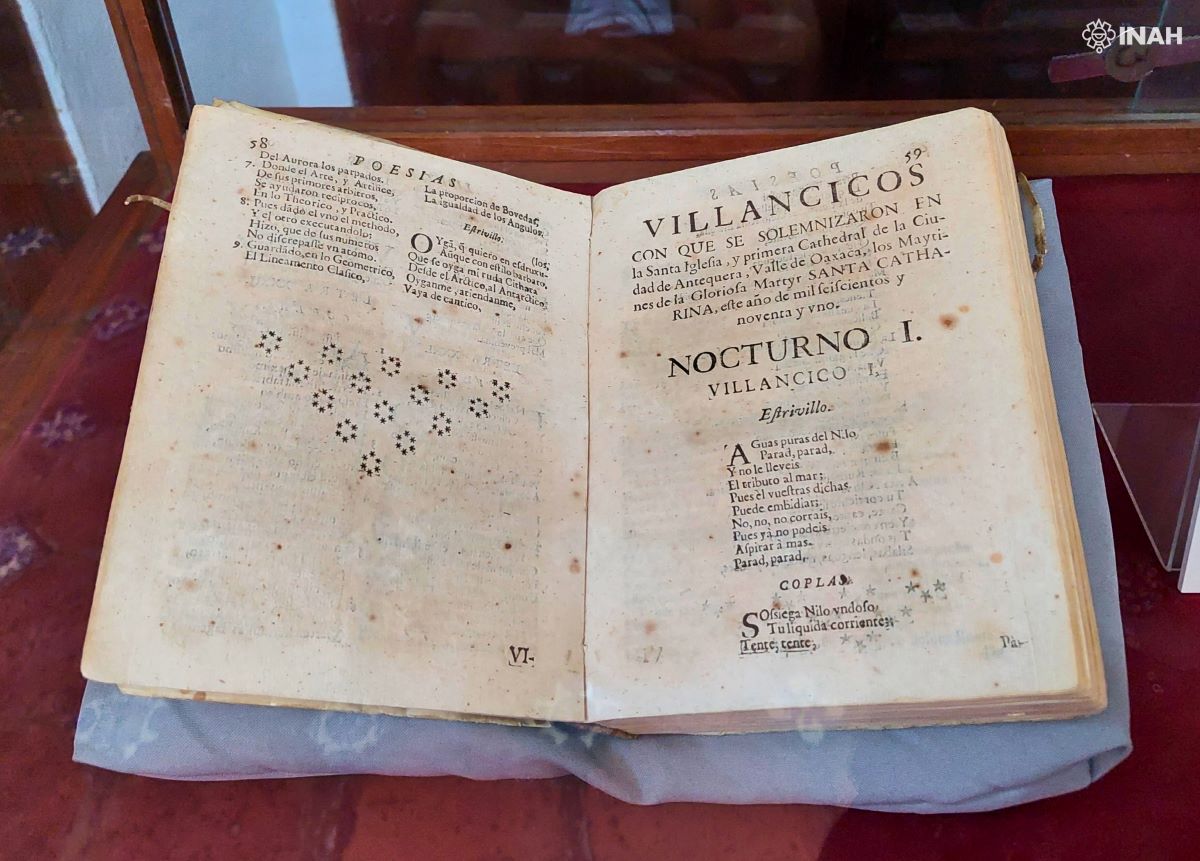 INAH
58
POESIAS
Del Aurora los parpados.
7. Donde el Arte, y Artifice,
De sus primores arbitros,
Se ayudaron reciprocos,
En lo Theorico, y Practico.
8. Pues dado el vno el methodo,
Y el otro executandolo;
Hizo, que de sus numeros
No discrepasse vn atomo.
9. Guardado, en lo Geometrico,
El Lineamento Clasico,
La proporcion de Bovedas,
La igualdad de los Angulos.
Estrivillo.
OYgã, q̃ quiero en esdruxu-
(los,
Aũque con estilo barbaro,
Que se oyga mi ruda Cithara
Desde el Arctico, al Antarctico;
Oyganme, atiendanme,
Vaya de cantico,
VI-
59
VILLANCICOS
CON QUE SE SOLEMNIZARON EN
la Santa Iglesia, y primera Cathedral de la Ciu-
dad de Antequera, Valle de Oaxaca, los Mayti-
nes de la Gloriosa Martyr SANTA CATHA-
RINA, este año de mil seiscientos y
noventa y vno.
NOCTURNO I.
VILLANCICO I.
Estrivillo.
AGuas puras del Nilo,
Parad, parad,
Y no le lleveis
El tributo al mar;
Pues èl vuestras dichas
Puede embidiar;
No, no, no corrais,
Pues yà no podeis
Aspirar à mas.
Parad, parad,
COPLAS.
SOssiega Nilo vndoso,
Tu liquida corriente;
Tente, tente,
Pa-